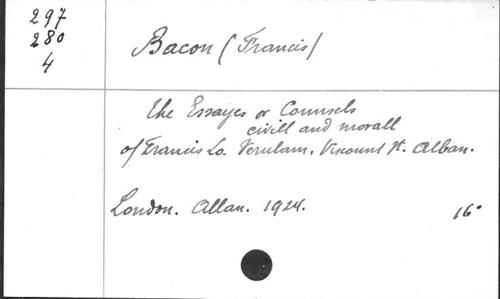 297
280
4
Bacon (Francis)
The Essayes or Counsels
civill and morall
of Francis Lo. Verulam, Viscount St. Alban.
London. Allan. 1924.
16°